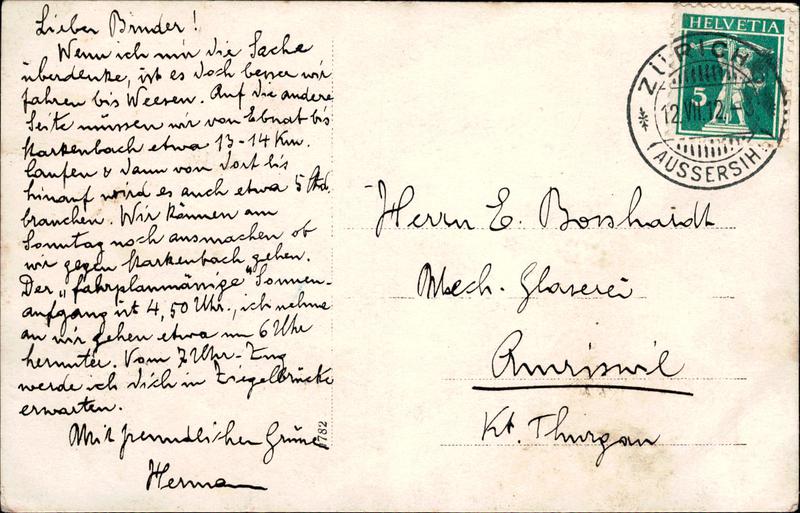 Lieber Bruder!
Wenn ich mir die Sache
überdenke, ist es doch besser wir
fahren bis Weesen. Auf die andere
Seite müssen wir von Ebnat bis
Starkenbach etwa 13-14 Km.
laufen & dann von dort bis
hinauf wird es auch etwa 5 Std.
brauchen. Wir können am
Sonntag noch ausmachen ob
wir gegen Starkenbach gehen.
Der „fahrplanmässige" Sonnen-
aufgang ist 4,50 Uhr., ich nehme
an wir gehen etwa um 6 Uhr
herunter. Vom 7 Uhr-Zug
werde ich dich in Ziegelbrücke
erwarten.
Mit freundlichen Grüssen
Hermann
1782
HELVETIA
5
ZÜRICH
12.VII.12.
(AUSSERSIHL)
Herrn E. Bosshardt
Mech. Glaserei
Amriswil
Kt. Thurgau